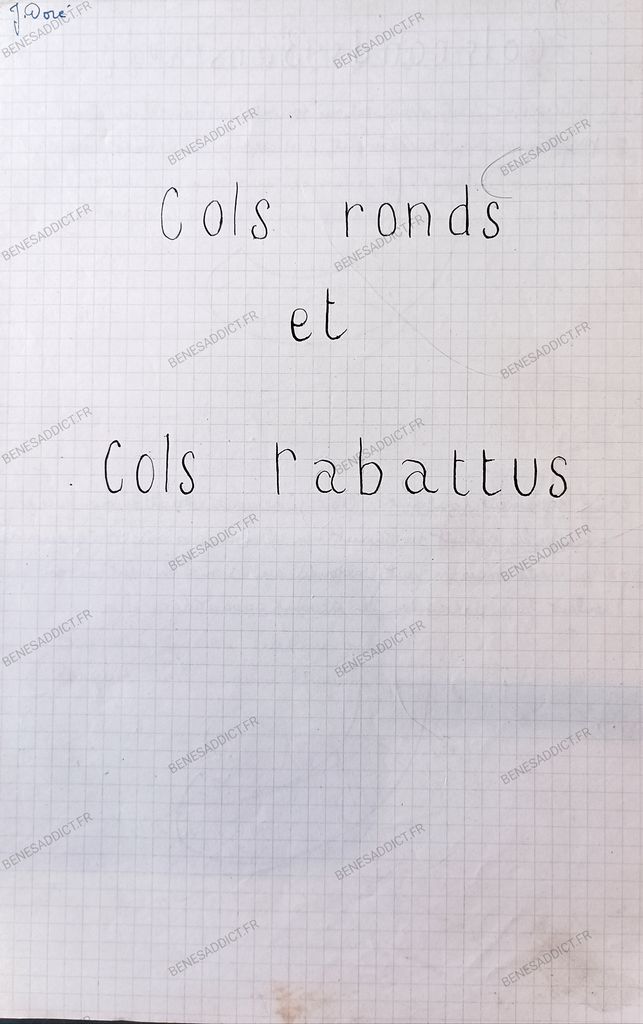 J. Doré
Cols ronds
et
Cols rabattus
BENESADDICT.FR